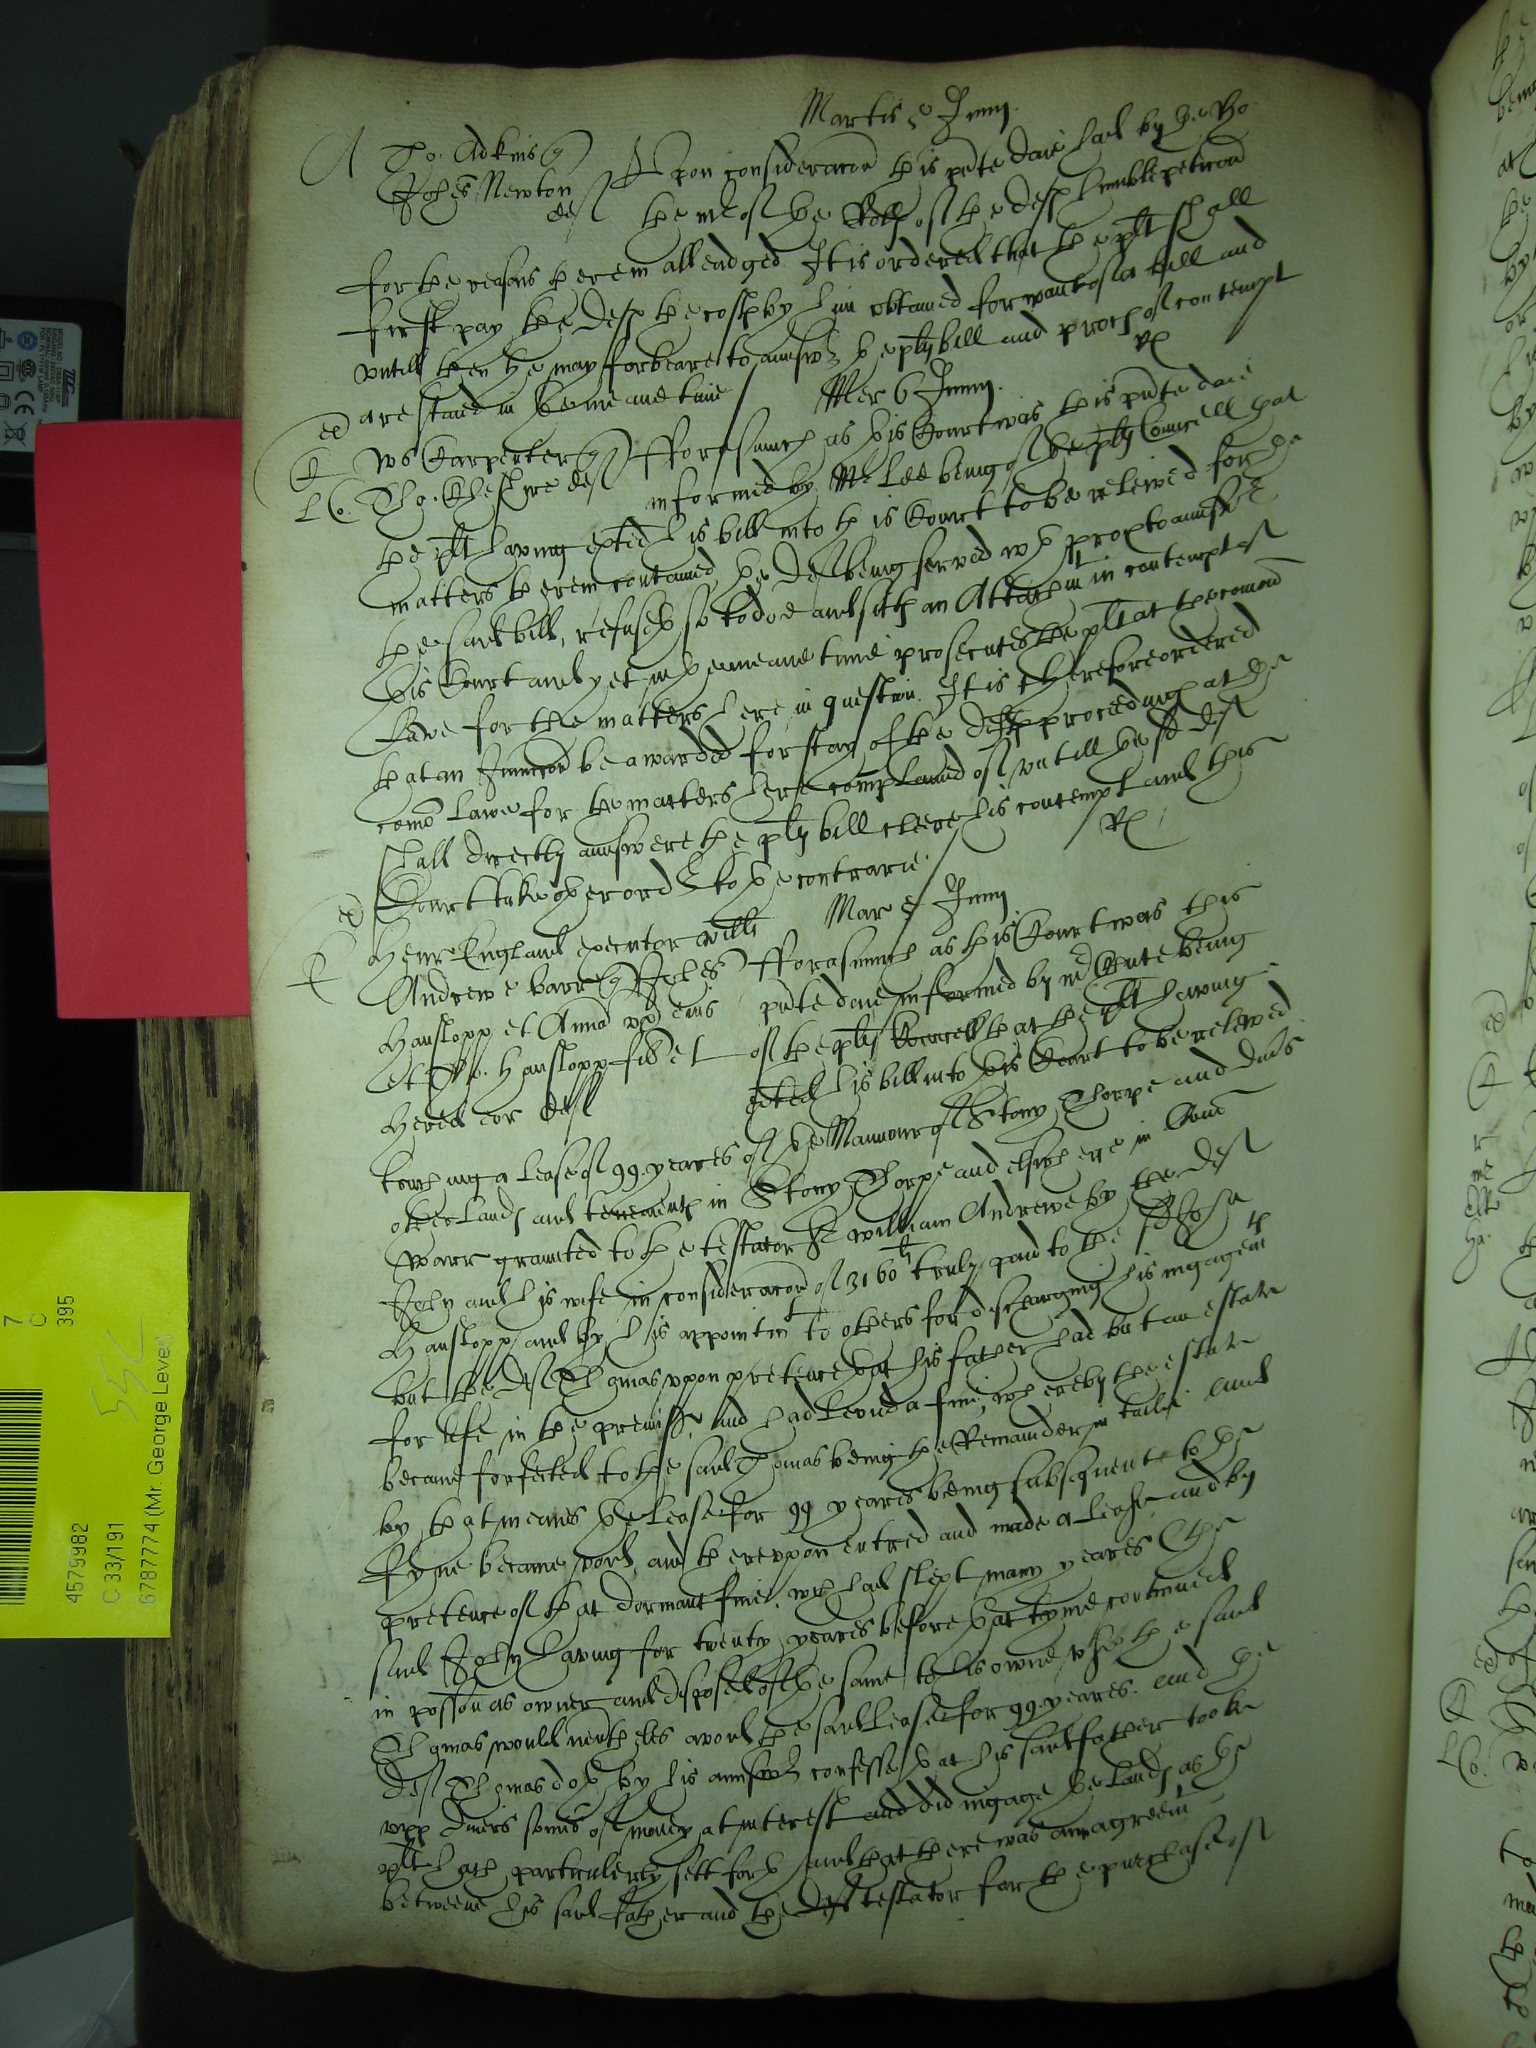 Martis 5 Junij
A
Tho. Adkins q
Johes Newton
def
Upon consideracon this pnte daie had by the Ho
the Mr of the Rolls of the defs humble peticon
for the reasons therein alleadged It is ordered that the plt shall
first pay the def the costs by him obtained for want of a bill and
untill then he may forbeare to answr the plts bill and proces of contempt
are staied in the meane time
Mer 6 Junij
Ws Carpenter q
Tho. Cheshire def
Forasmuch as this Court was this pnte daie
informed by Mr Lee being of the plts Councell that
the plt having exted his bill into this Court to be releived for the
matters therein contained the def being served wth proces to answere
the said bill, refuseth so to doe and sitth an Attachmt in contempt of
this Court and yet in the meane time prosecutes the plt at the comon
lawe for the matters here in question. It is therefore ordered
that an Iniunccon be awarded for stay of the defs proceedings at the
comon lawe for the matters here complained of untill the sd def
shall directly answere the plts bill cleere his contempt and this
Court take other order to the contrarie.
Mar 5 Junij
Henr England executor Willi
Andrewe barr q Johes
Hanslopp et Anna uxor eius
et Tho. Hanslopp fil et
Hered eor def
Forasmuch as this Court was this
pnte daie informed by Mr Chute being
of the plts Councell that the plt having
exted his bill into this Court to be releived
touching a lease of 99 yeares of the Mannour of Stony Thorpe and divs
other lands and tenements in Stony Thorpe and elswhere in Com
Warr graunted to the testator Sr William Andrewe by the def
John and his wife in consideracon of 3160 li truly paid to the sd John
Hanslopp and by his appointmt to others for discharging his ingagemts
but the def Thomas upon pretence that his father had but an estate
for life in the premisses, and had levied a fine, whereby the estate
became forfeited to the said Thomas being the Remainder in taile and
by that means the lease for 99 yeares being subsequent to the
fyne became void, and thereupon entred and made a lease and by
pretence of that dormant fine, wch had slept many yeares (the
said John having for twenty yeares before that tyme continued
in possion as owner and disposed of the same to his owne use) the said
Thomas would neverthelesse avoid the said lease for 99 yeares. And the
def Thomas doth by his answr confesse that his said father tooke
upp divers somes of money at interest and did ingage the lands as the
plt hath particulerly sett forth and that there was an agreemt
betweene his said father and the defs testator for the purchase of
4579982
C 33/191
6787774 (Mr. George Leve
7
C
395
55L